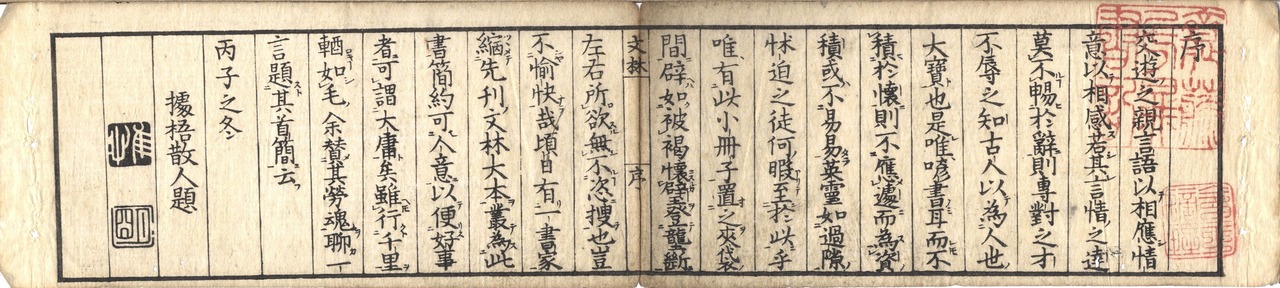 序
交遊之親言語以相應情
意以相感若其言情之達
莫不暢於辭則專對之才
不辱之知古人以為人世
大寶也是唯喭書耳而不
積於懷則不應遽而為資
積或不易易英靈如過隙
怵迫之徒何暇至於此乎
唯有此小冊子置之夾袋
間辟如被褐懷璧登壟斷
左右所欲無不恣捜也豈
不愉快哉頃日有一書家
縮先刊文林大本叢為此
書簡約可人意以便好事
者可謂大庸矣雖行千里
輶如毛余賛其勞魂聊一
言題其首簡云
丙子之冬
據梧散人題
文林 序